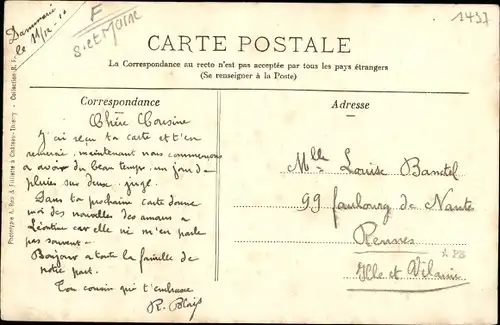 Dammarie
le 11/12 - 10
F
S. et Marne
1497
CARTE POSTALE
La Correspondance au recto n'est pas acceptée par tous les pays étrangers
(Se renseigner à la Poste)
Correspondance
Adresse
Chère Cousine
J'ai reçu ta carte et t'en
remercie, maintenant nous commençons
a avoir du beau temps, un jour de
pluie sur deux
Dans ta prochaine carte donne
moi des nouvelles des
Léontine car elle ne m'en parle
pas souvent -
Bonjour a toute la famille de
notre part.
Ton cousin qui t'embrasse
R. Blais
Mlle Louise Banctel
99 faubourg de Nantes
Rennes
Ille et Vilaine
Phototypie A. Rep. & Filliette à Château-Thierry - Collection R. F.